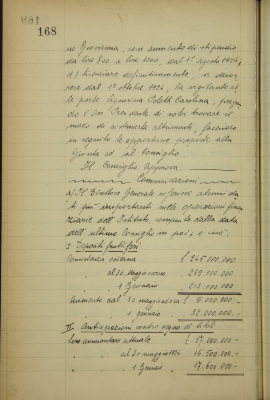 168
no Giovanna, con aumento di stipendio
da lire 800 a lire 1000, dal 1° agosto 1926;
d) licenziare definitivamente, a decor-
rere dal 1° ottobre 1926, la vigilante al-
le porte Signorina Carolina, pregan-
do l'On. Presidente di voler trovare il
modo di sistemarla altrimenti, facendo
in seguito le opportune proposte alla
Giunta ed al Consiglio.
Il Consiglio approva.
Comunicazioni.
a) Il Direttore Generale riferisce alcuni da-
ti più importanti sulle operazioni finan-
ziarie dell'Istituto compiute dalla data
dell'ultimo Consiglio in poi, e cioè:
I Depositi fruttiferi
Consistenza odierna £ 245.000.000
" al 30 maggio scorso " 239.000.000
" 1 Gennaio " 213.000.000
Aumento dal 30 maggio scorso £ 6.000.000 -
" 1 gennaio " 32.000.000 -
II Anticipazioni contro pegno di titoli
Loro ammontare attuale £ 17.000.000 -
" al 30 maggio " 16.500.000 -
" 1 Gennaio " 17.600.000 -